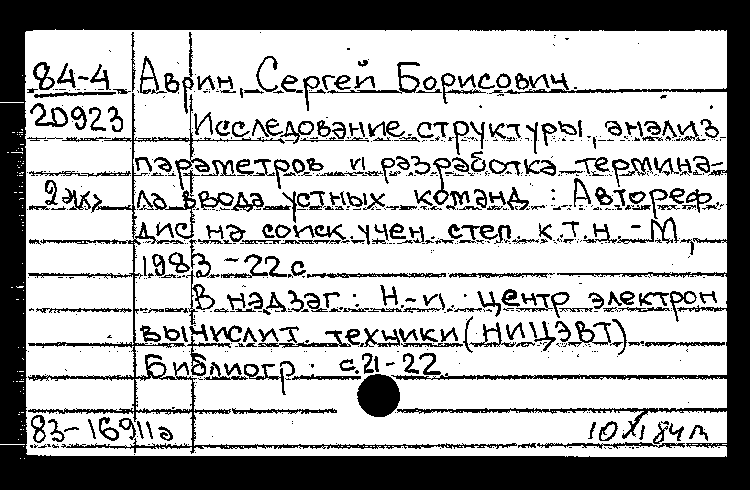 84-4 Аврин, Сергей Борисович.
20923 Исследование структуры, анализ
параметров и разработка термина-
2 экз ла ввода устных команд : Автореф.
дис на соиск. учен. степ. к.т.н. - М,
1983 - 22 с
В надзаг : Н.-и. центр электрон
вычислит. техники (НИЦЭВТ)
Библиогр : с.21-22.
83-16911а 10 XI 84